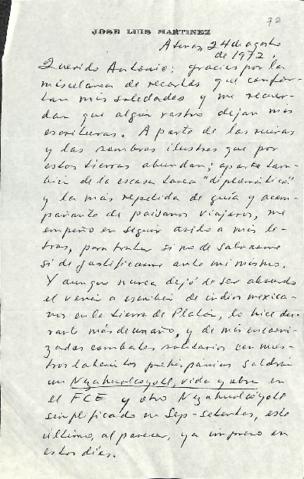 72
JOSE LUIS MARTINEZ
Atenas, 24 de agosto
de 1972.
Querido Antonio: gracias por la
miscelanea de recortes que confor-
tan mis soledades y me recuer-
dan que algún rastro dejan mis
escrituras. A parte de las ruinas
y las sombras ilustres que por
estas tierras abundan; aparte tam-
bién de la escasa tarea "diplomática"
y la más repetida de guía y acom-
pañante de paisanos viajeros, me
empeño en seguir asido a mis le-
tras, para tratar si no de salvarme
si de justificarme ante mí mismo.
Y aunque nunca dejó de ser absurdo
el venir a escribir de indios mexica-
nos en la tierra de Platón, lo hice du-
rante más de un año, y de mis encarni-
zados combates solitarios con nues-
tros latinitos prehispánicos saldrán
un Nezahualcóyotl, vida y obra en
el FCE y otro Nezahualcóyotl
simplificado en Sep-setentas, este
último, al parecer, ya impreso en
estos días.